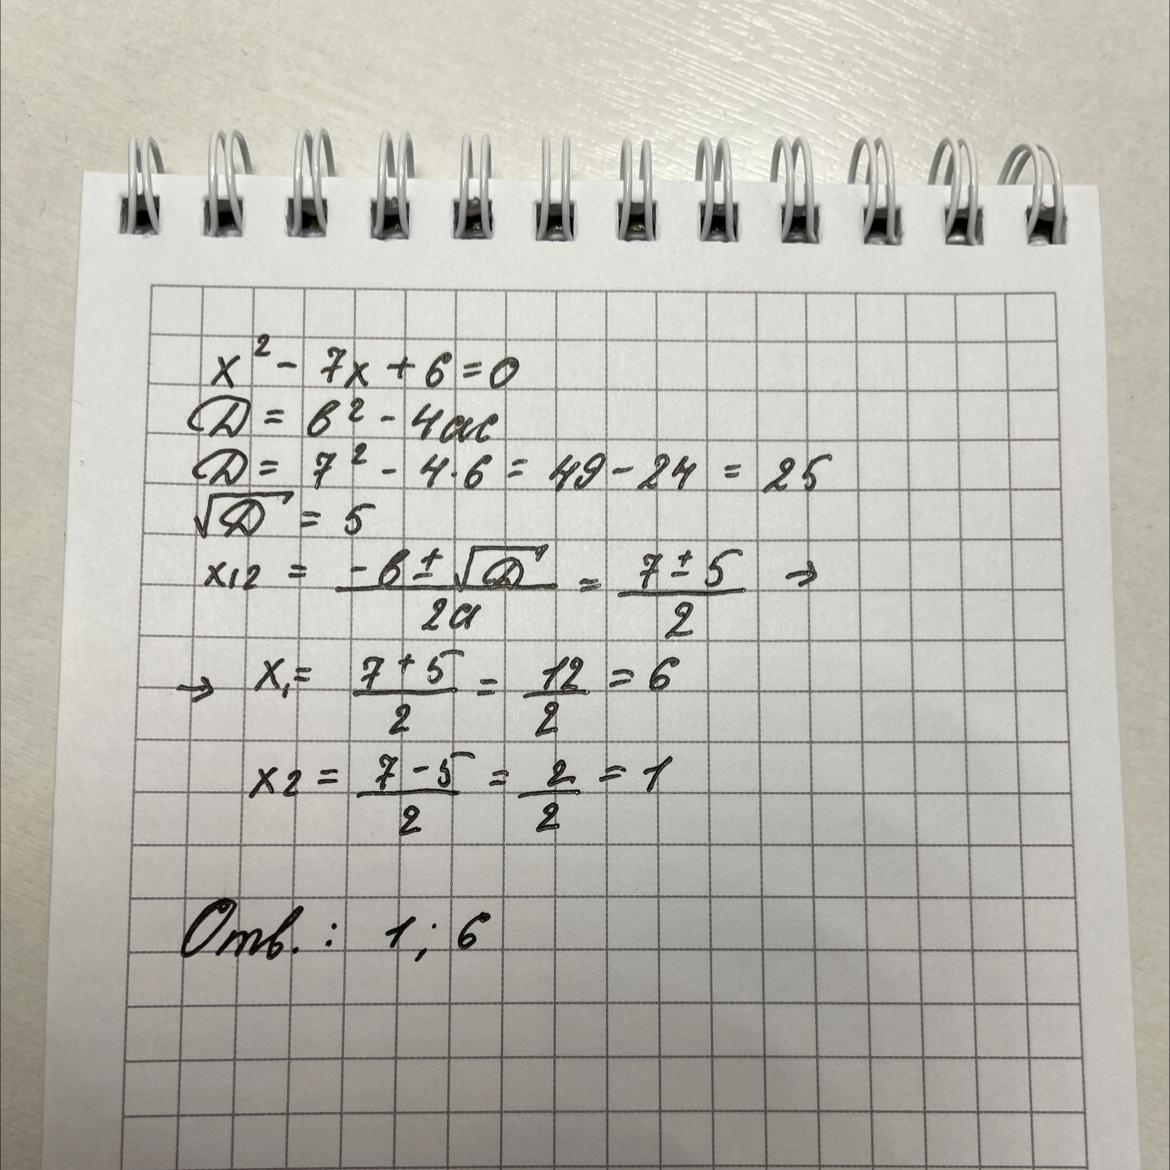 x² - 7x + 6 = 0
D = b² - 4ac
D = 7² - 4·6 = 49 - 24 = 25
√D = 5
x₁₂ = (-b ± √D)/(2a) = (7 ± 5)/2 →
→ x₁ = (7 + 5)/2 = 12/2 = 6
x₂ = (7 - 5)/2 = 2/2 = 1
Отв.: 1; 6